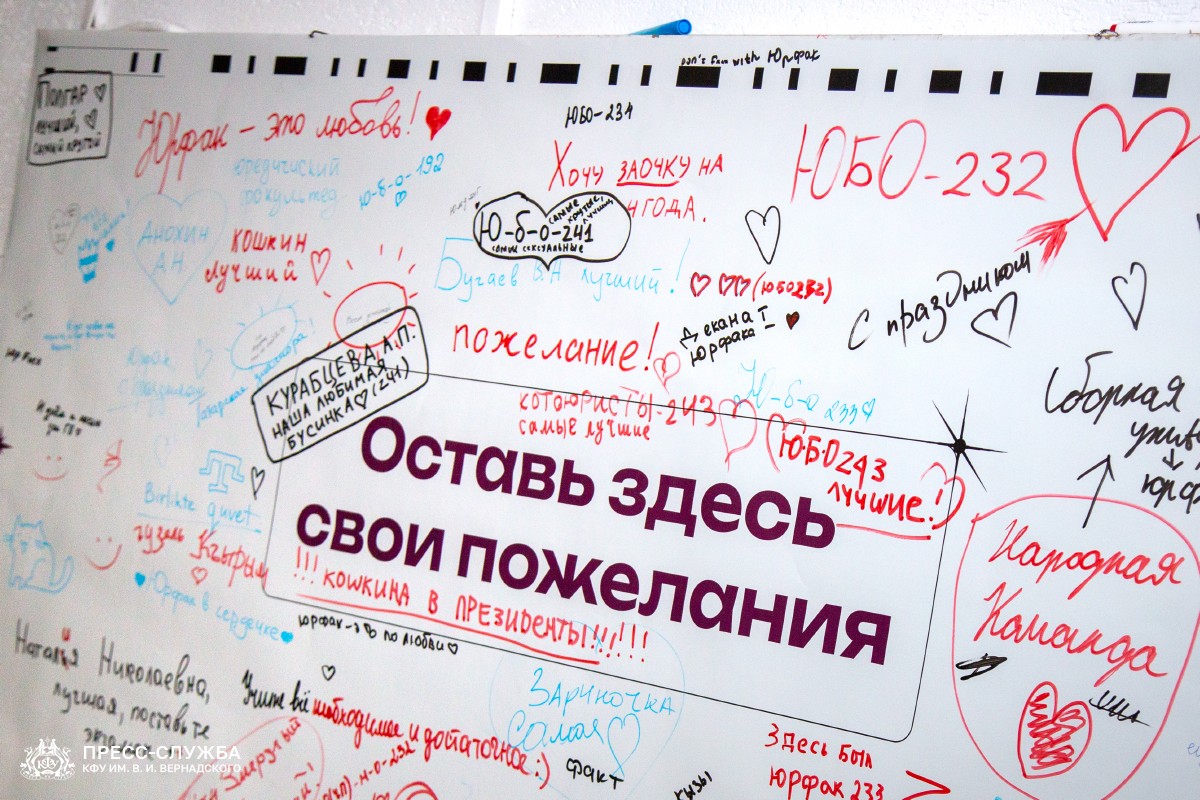 Don's fam with Юрфак
Полгар
лучший,
самый крутой
Юрфак - это любовь!
ЮБО-231
Хочу заочку на
ЮБО-232
юридический
факультет
Ю-б-о-192
Ю-б-о-241
самые крутые,
лучшие
самые сексуальные
нгода.
Анохин
АН
Кошкин
лучший
Бугаев В.А лучший!
(ЮБО232)
С праздником
Деканат
Юрфака
пожелание!
КУРАБЦЕВА А.П.
НАША ЛЮБИМАЯ
БУСИНКА (241)
КОТОЮРИСТЫ-243
самые лучшие
Ю-б-о 233
(Ю.Б.О243
лучшие!)
Сборная
Юрфак
Оставь здесь
свои пожелания
Birlikte quvet
гузель Къырым
Юрфак в сердечке
!!! КОШКИНА В ПРЕЗИДЕНТЫ!!!!!!
Юрфак-это по любви
Народная
Команда
Наталия Николаевна,
лучшая, поставьте
Учите всё необходимое и достаточное:)
Зариночка
Самая
факт
Здесь был
Юрфак 233
ПРЕСС-СЛУЖБА
КФУ ИМ. В. И. ВЕРНАДСКОГО